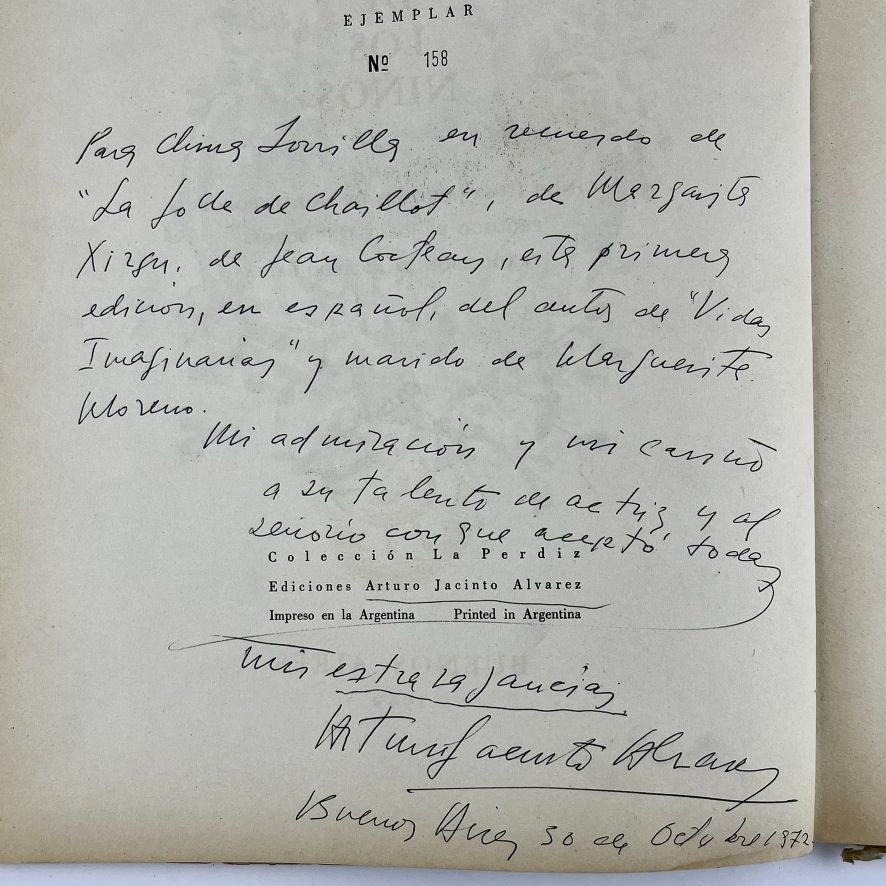 EJEMPLAR
Nº 158
Para China Zorrilla en recuerdo de
"La folle de Chaillot", de Margarita
Xirgu, de Jean Cocteau, esta primera
edición, en español, del autor de "Vidas
Imaginarias" y marido de Marguerite
Moreno.
Mi admiración y mi cariño
a su talento de actriz y al
señorío con que aceptó todas
Colección La Perdiz
Ediciones Arturo Jacinto Alvarez
Impreso en la Argentina Printed in Argentina
mis extravagancias
Arturo Jacinto Alvarez
Buenos Aires 30 de Octubre 1972